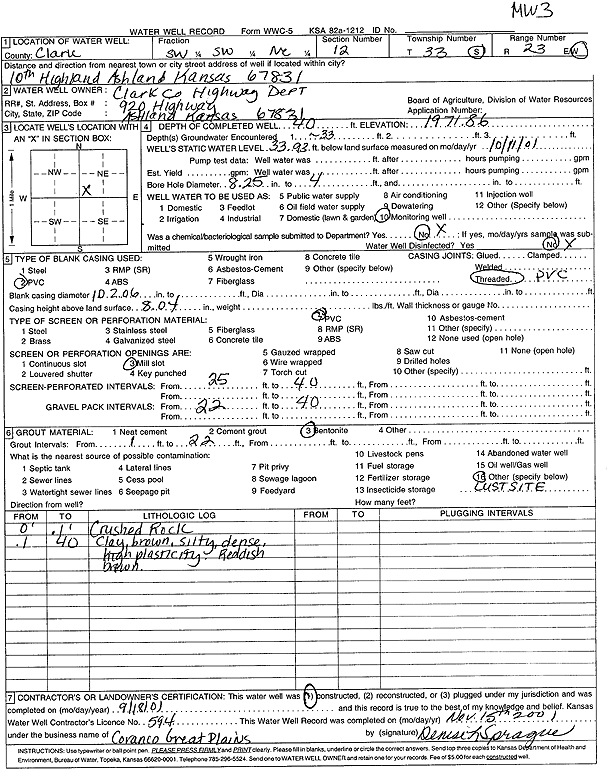 MW3
WATER WELL RECORD Form WWC-5 KSA 82a-1212 ID No.
1 LOCATION OF WATER WELL: Fraction Section Number Township Number Range Number
County: Clark SW ¼ SW ¼ NE ¼ 12 T 33 S R 23 E/W
Distance and direction from nearest town or city street address of well if located within city?
10th Highland Ashland Kansas 67831
2 WATER WELL OWNER: Clark Co Highway Dept
RR#, St. Address, Box # : 920 Highway Board of Agriculture, Division of Water Resources
City, State, ZIP Code : Ashland Kansas 67831 Application Number:
3 LOCATE WELL'S LOCATION WITH AN "X" IN SECTION BOX:
N
NW NE
W X E
SW SE
1 Mile
4 DEPTH OF COMPLETED WELL 40 ft. ELEVATION: 1971.86
Depth(s) Groundwater Encountered 1. ~33 ft. 2. ft. 3. ft.
WELL'S STATIC WATER LEVEL 33.93 ft. below land surface measured on mo/day/yr 10/11/01
Pump test data: Well water was ft. after hours pumping gpm
Est. Yield gpm: Well water was ft. after hours pumping gpm
Bore Hole Diameter 8.25 in. to 4 ft., and in. to ft.
WELL WATER TO BE USED AS: 5 Public water supply 8 Air conditioning 11 Injection well
1 Domestic 3 Feedlot 6 Oil field water supply 9 Dewatering 12 Other (Specify below)
2 Irrigation 4 Industrial 7 Domestic (lawn & garden) 10 Monitoring well
Was a chemical/bacteriological sample submitted to Department? Yes No X ; If yes, mo/day/yrs sample was submitted
Water Well Disinfected? Yes No X
5 TYPE OF BLANK CASING USED: 5 Wrought iron 8 Concrete tile CASING JOINTS: Glued Clamped
1 Steel 3 RMP (SR) 6 Asbestos-Cement 9 Other (specify below) Welded
2 PVC 4 ABS 7 Fiberglass Threaded PVC
Blank casing diameter ID 2.06 in. to ft., Dia in. to ft., Dia in. to ft.
Casing height above land surface 8.04 in., weight lbs./ft. Wall thickness or gauge No.
TYPE OF SCREEN OR PERFORATION MATERIAL: 7 PVC 10 Asbestos-cement
1 Steel 3 Stainless steel 5 Fiberglass 8 RMP (SR) 11 Other (specify)
2 Brass 4 Galvanized steel 6 Concrete tile 9 ABS 12 None used (open hole)
SCREEN OR PERFORATION OPENINGS ARE: 5 Gauzed wrapped 8 Saw cut 11 None (open hole)
1 Continuous slot 3 Mill slot 6 Wire wrapped 9 Drilled holes
2 Louvered shutter 4 Key punched 7 Torch cut 10 Other (specify) ft.
SCREEN-PERFORATED INTERVALS: From 25 ft. to 40 ft., From ft. to ft.
From ft. to ft., From ft. to ft.
GRAVEL PACK INTERVALS: From 22 ft. to 40 ft., From ft. to ft.
From ft. to ft., From ft. to ft.
6 GROUT MATERIAL: 1 Neat cement 2 Cement grout 3 Bentonite 4 Other
Grout Intervals: From 1 ft. to 22 ft., From ft. to ft., From ft. to ft.
What is the nearest source of possible contamination: 10 Livestock pens 14 Abandoned water well
1 Septic tank 4 Lateral lines 7 Pit privy 11 Fuel storage 15 Oil well/Gas well
2 Sewer lines 5 Cess pool 8 Sewage lagoon 12 Fertilizer storage 16 Other (specify below)
3 Watertight sewer lines 6 Seepage pit 9 Feedyard 13 Insecticide storage LUST SITE
Direction from well? How many feet?
FROM TO LITHOLOGIC LOG FROM TO PLUGGING INTERVALS
0' .1' Crushed Rock
.1 40 Clay, brown, silty, dense,
high plasticity Reddish
brown.
7 CONTRACTOR'S OR LANDOWNER'S CERTIFICATION: This water well was (1) constructed, (2) reconstructed, or (3) plugged under my jurisdiction and was
completed on (mo/day/year) 9/18/01 and this record is true to the best of my knowledge and belief. Kansas
Water Well Contractor's Licence No. 594 This Water Well Record was completed on (mo/day/yr) Nov. 15th 2001
under the business name of Coranco Great Plains by (signature) Denise Sprague
INSTRUCTIONS: Use typewriter or ball point pen. PLEASE PRESS FIRMLY and PRINT clearly. Please fill in blanks, underline or circle the correct answers. Send top three copies to Kansas Department of Health and
Environment, Bureau of Water, Topeka, Kansas 66620-0001. Telephone 785-296-5524. Send one to WATER WELL OWNER and retain one for your records. Fee of $5.00 for each constructed well.